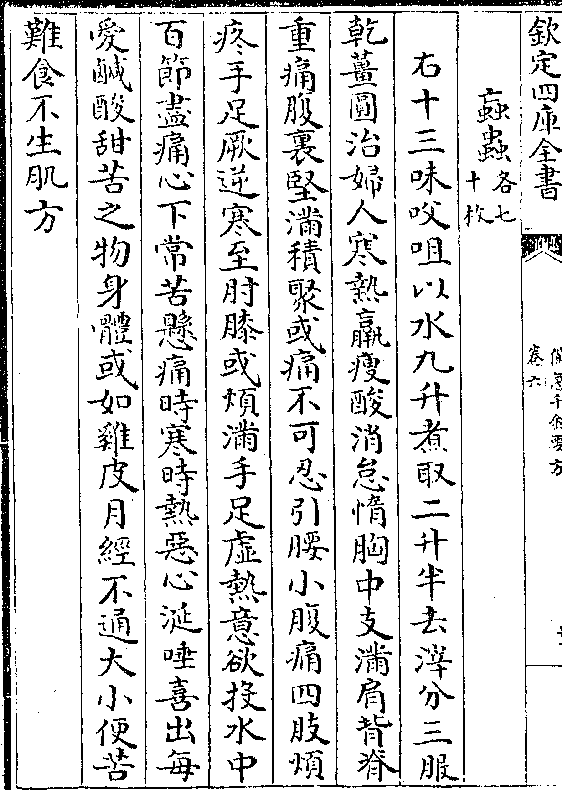 欽定四庫全書
備急千金要方
卷六
䖟蟲各七十枚
右十三味㕮咀以水九升煮取二升半去滓分三服
乾薑圓治婦人寒熱羸瘦酸消怠惰胸中支滿肩背脊
重痛腹裏堅滿積聚或痛不可忍引腰小腹痛四肢煩
疼手足厥逆寒至肘膝或煩滿手足虛熱意欲投水中
百節盡痛心下常苦懸痛時寒時熱惡心涎唾喜出每
愛鹹酸甜苦之物身體或如雞皮月經不通大小便苦
難食不生肌方